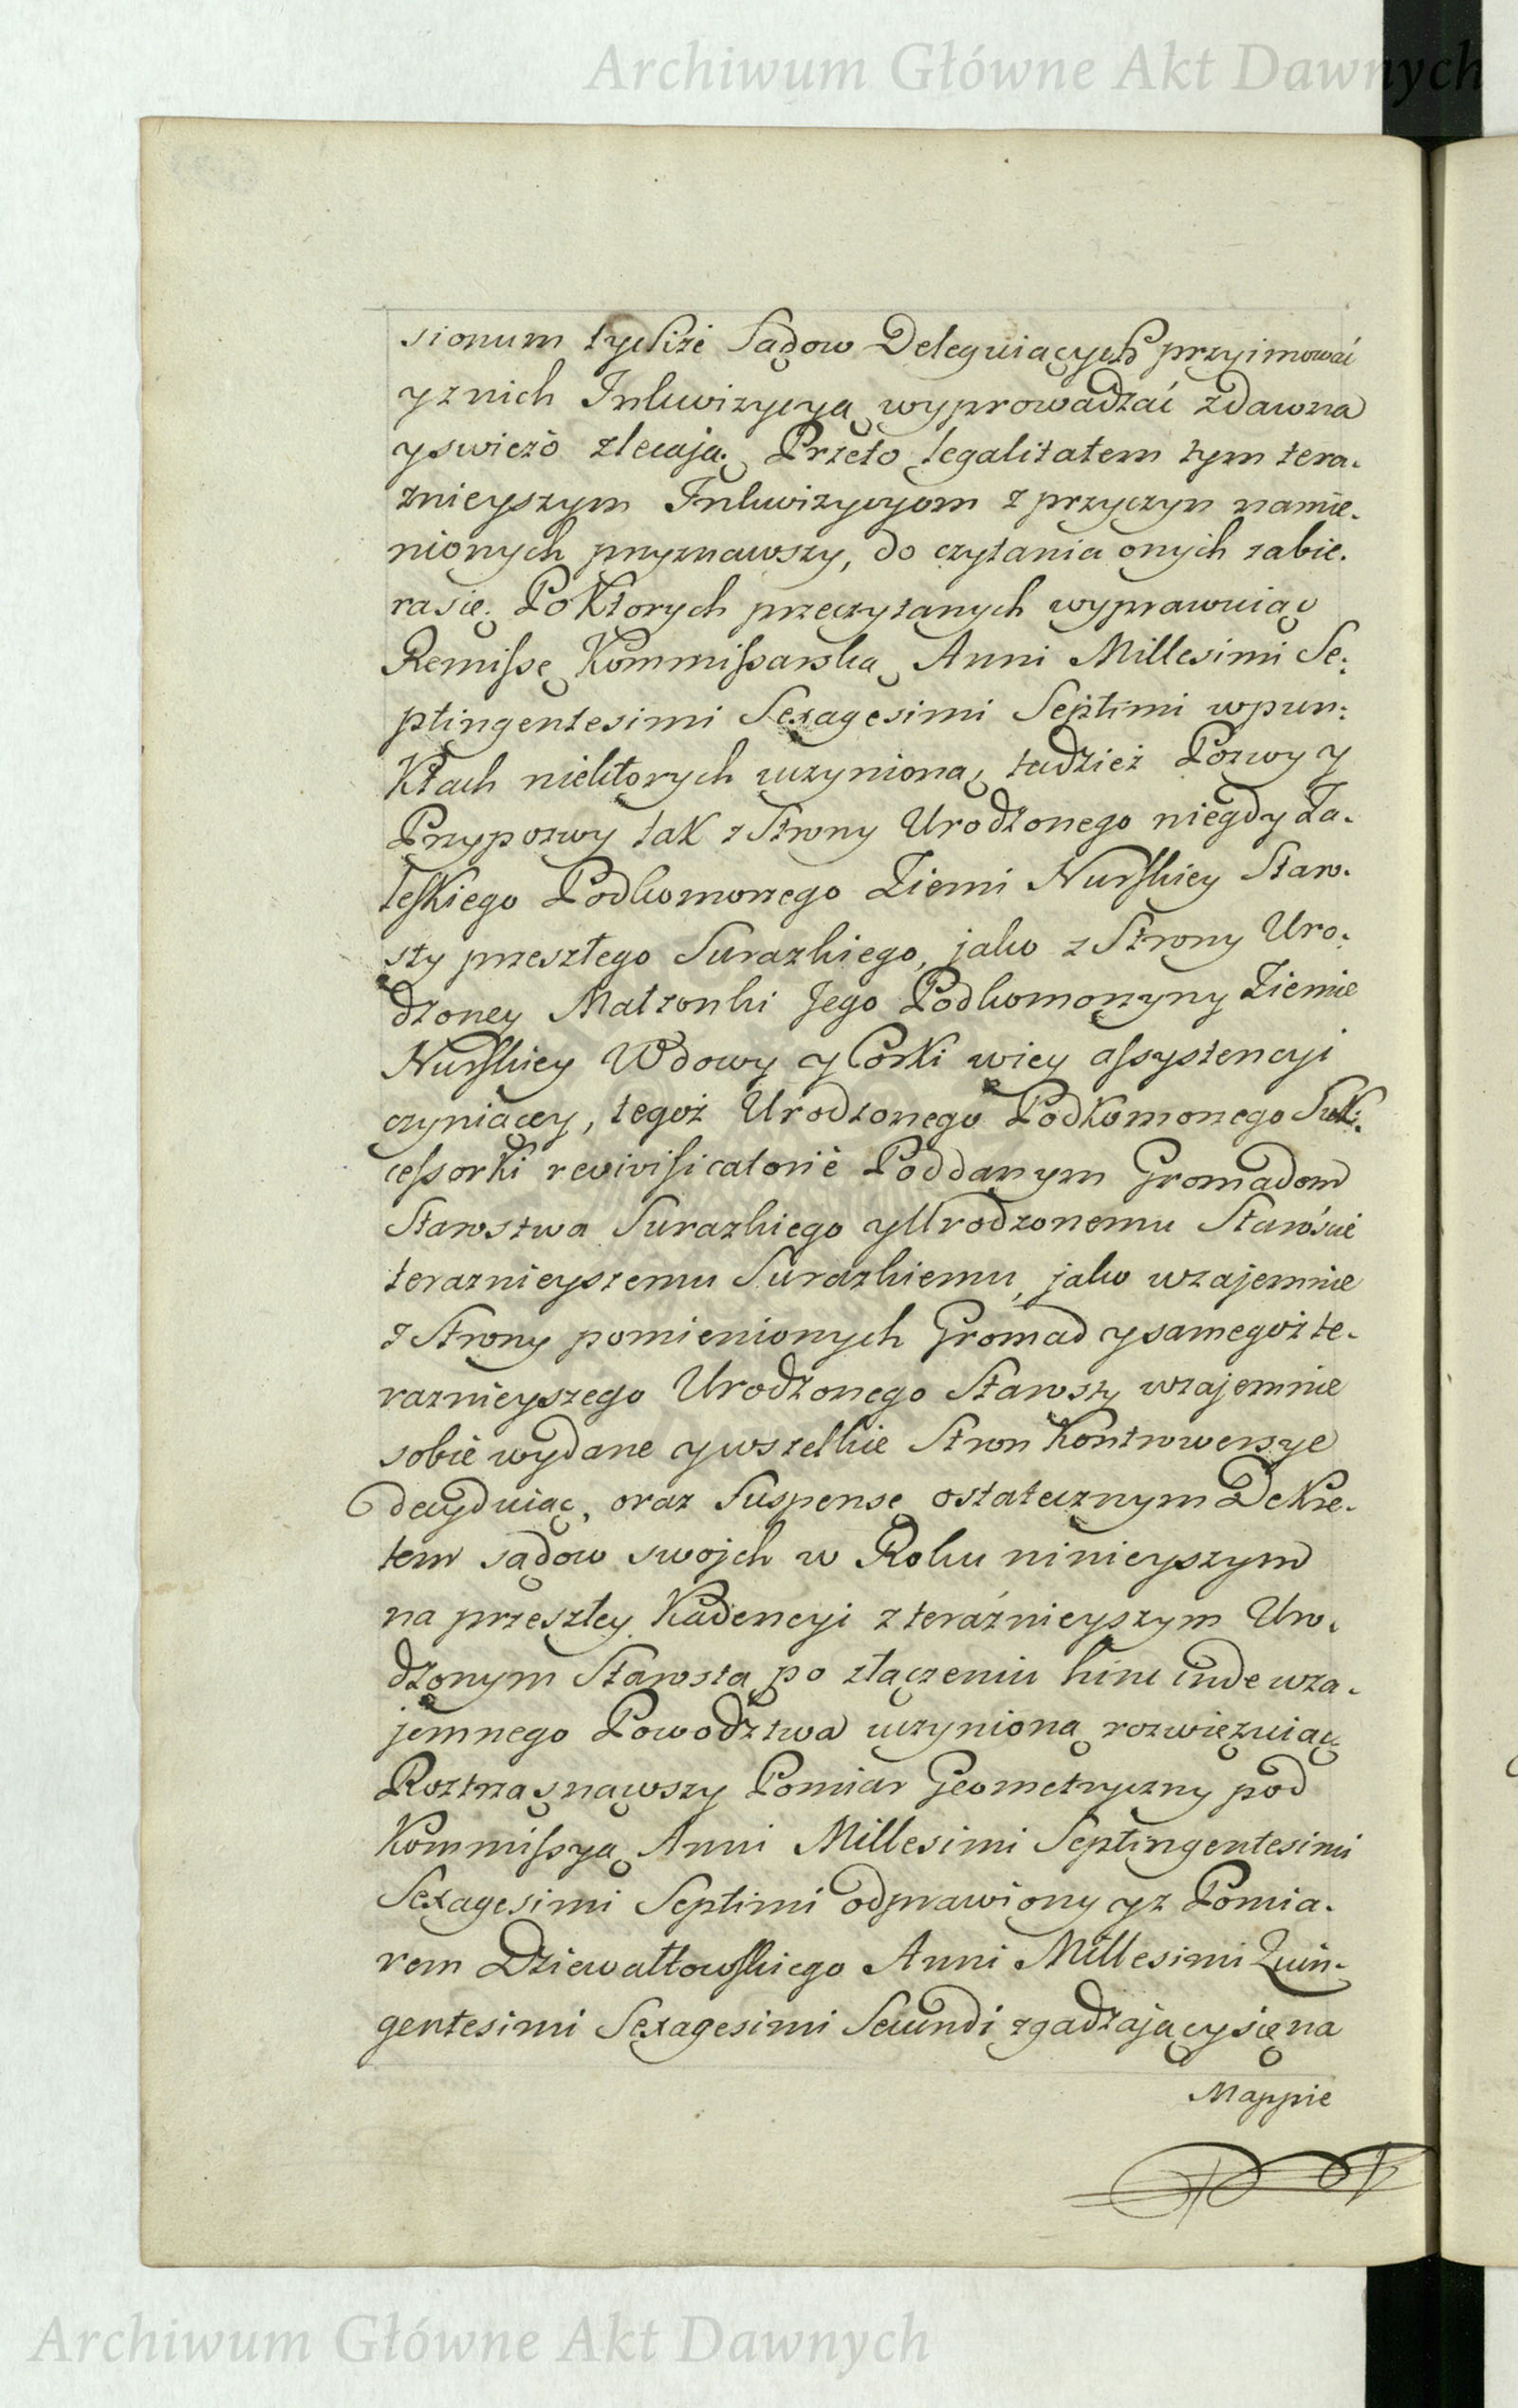 Archiwum Główne Akt Dawnych
sionum tychże Sądow Deleguiących przyimować
y z nich Inkwizycyą wyprowadzać zdawna
y swieżo zlecają. Przeto legalitatem tym tera-
znieyszym Inkwizycyom z przyczyn namie-
nionych przyznawszy, do czytania onych zabie-
ra się. Po Ktorych przeczytanych wyprawuiąc
Remissę Kommissarską Anni Millesimi Se-
ptingentesimi Sexagesimi Septimi w pun-
Ktach niektorych uczynioną, tudzież Pozwy y
Przypozwy tak z Strony Urodzonego niegdy Za-
leskiego Podkomorzego Ziemi Nurskiey Staro-
sty przeszłego Surazkiego, jako z Strony Uro-
dzoney Małzonki Jego Podkomorzyny Ziemie
Nurskiey Wdowy y Corki wiey assystencyi
czyniącey, tegoż Urodzonego Podkomorzego Suk-
cessorki revivificatorie Poddanym Gromadom
Starostwa Surazkiego y Urodzonemu Starościе
teraznieyszemu Surazkiemu, jako wzajemnie
z Strony pomienionych Gromad y samegoż te-
raznieyszego Urodzonego Starosty wzajemnie
sobie wydane y wszelkie Stron Kontrowersye
decyduiąc, oraz Suspensę ostatecznym Dekre-
tem sądow swojch w Roku ninieyszym
na przeszłey Kadencyi z teraźnieyszym Uro-
dzonym Starostą po złączeniu hinc inde wza-
jemnego Powodztwa uczynioną rozwięzuiąc
Roztrząsnąwszy Pomiar Geometryczny pod
Kommissyą Anni Millesimi Septingentesimi
Sexagesimi Septimi odprawiony y z Pomia-
rem Dziewałtowskiego Anni Millesimi Quin-
gentesimi Sexagesimi Secundi zgadzający się na
Mappie
Archiwum Główne Akt Dawnych